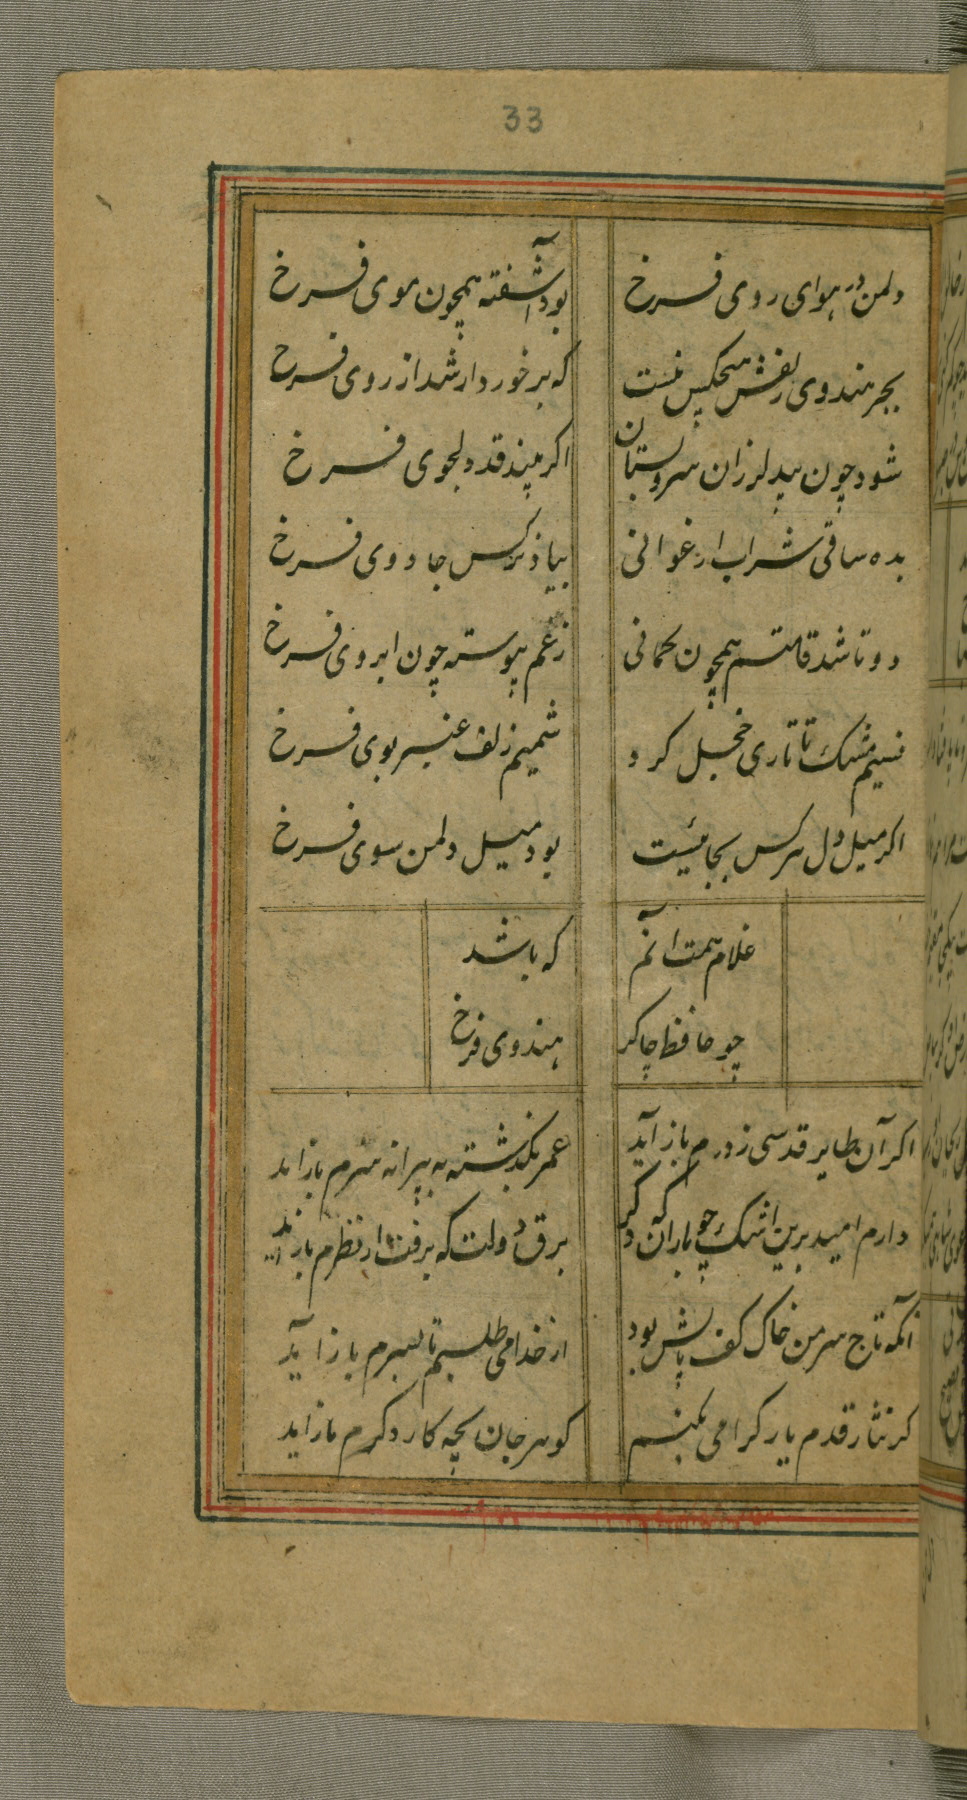 33
دلمن در هوای روی فرخ
بود آشفته همچون موی فرخ
بجز هندوی زلفش هیچکس نیست
که برخوردار شد از روی فرخ
شود چون بید لرزان سرو بستان
اکر بیند قد دلجوی فرخ
بده ساقی شراب ارغوانی
بیاد نرکس جادوی فرخ
دوتا شد قامتم همچون کمانی
زغم پیوسته چون ابروی فرخ
نسیم مشک تاتاری خجل کرد
شمیم زلف عنبربوی فرخ
اکر میل دل هرکس بجائیست
بود میل دلمن سوی فرخ
غلام همت آنم
که باشد
چو حافظ چاکر
هندوی فرخ
اکر آن طایر قدسی زدرم باز آید
عمر بکذشته به پیرانه سرم باز اید
دارم امید برین اشک چو باران که دکر
برق دولت که برفت از نظرم باز آید
آنکه تاج سر من خاک کف پایش بود
از خدا می طلبم تا بسرم باز آید
کر نثار قدم یار کرامی نکنم
کوهر جان بچه کار دکرم باز اید